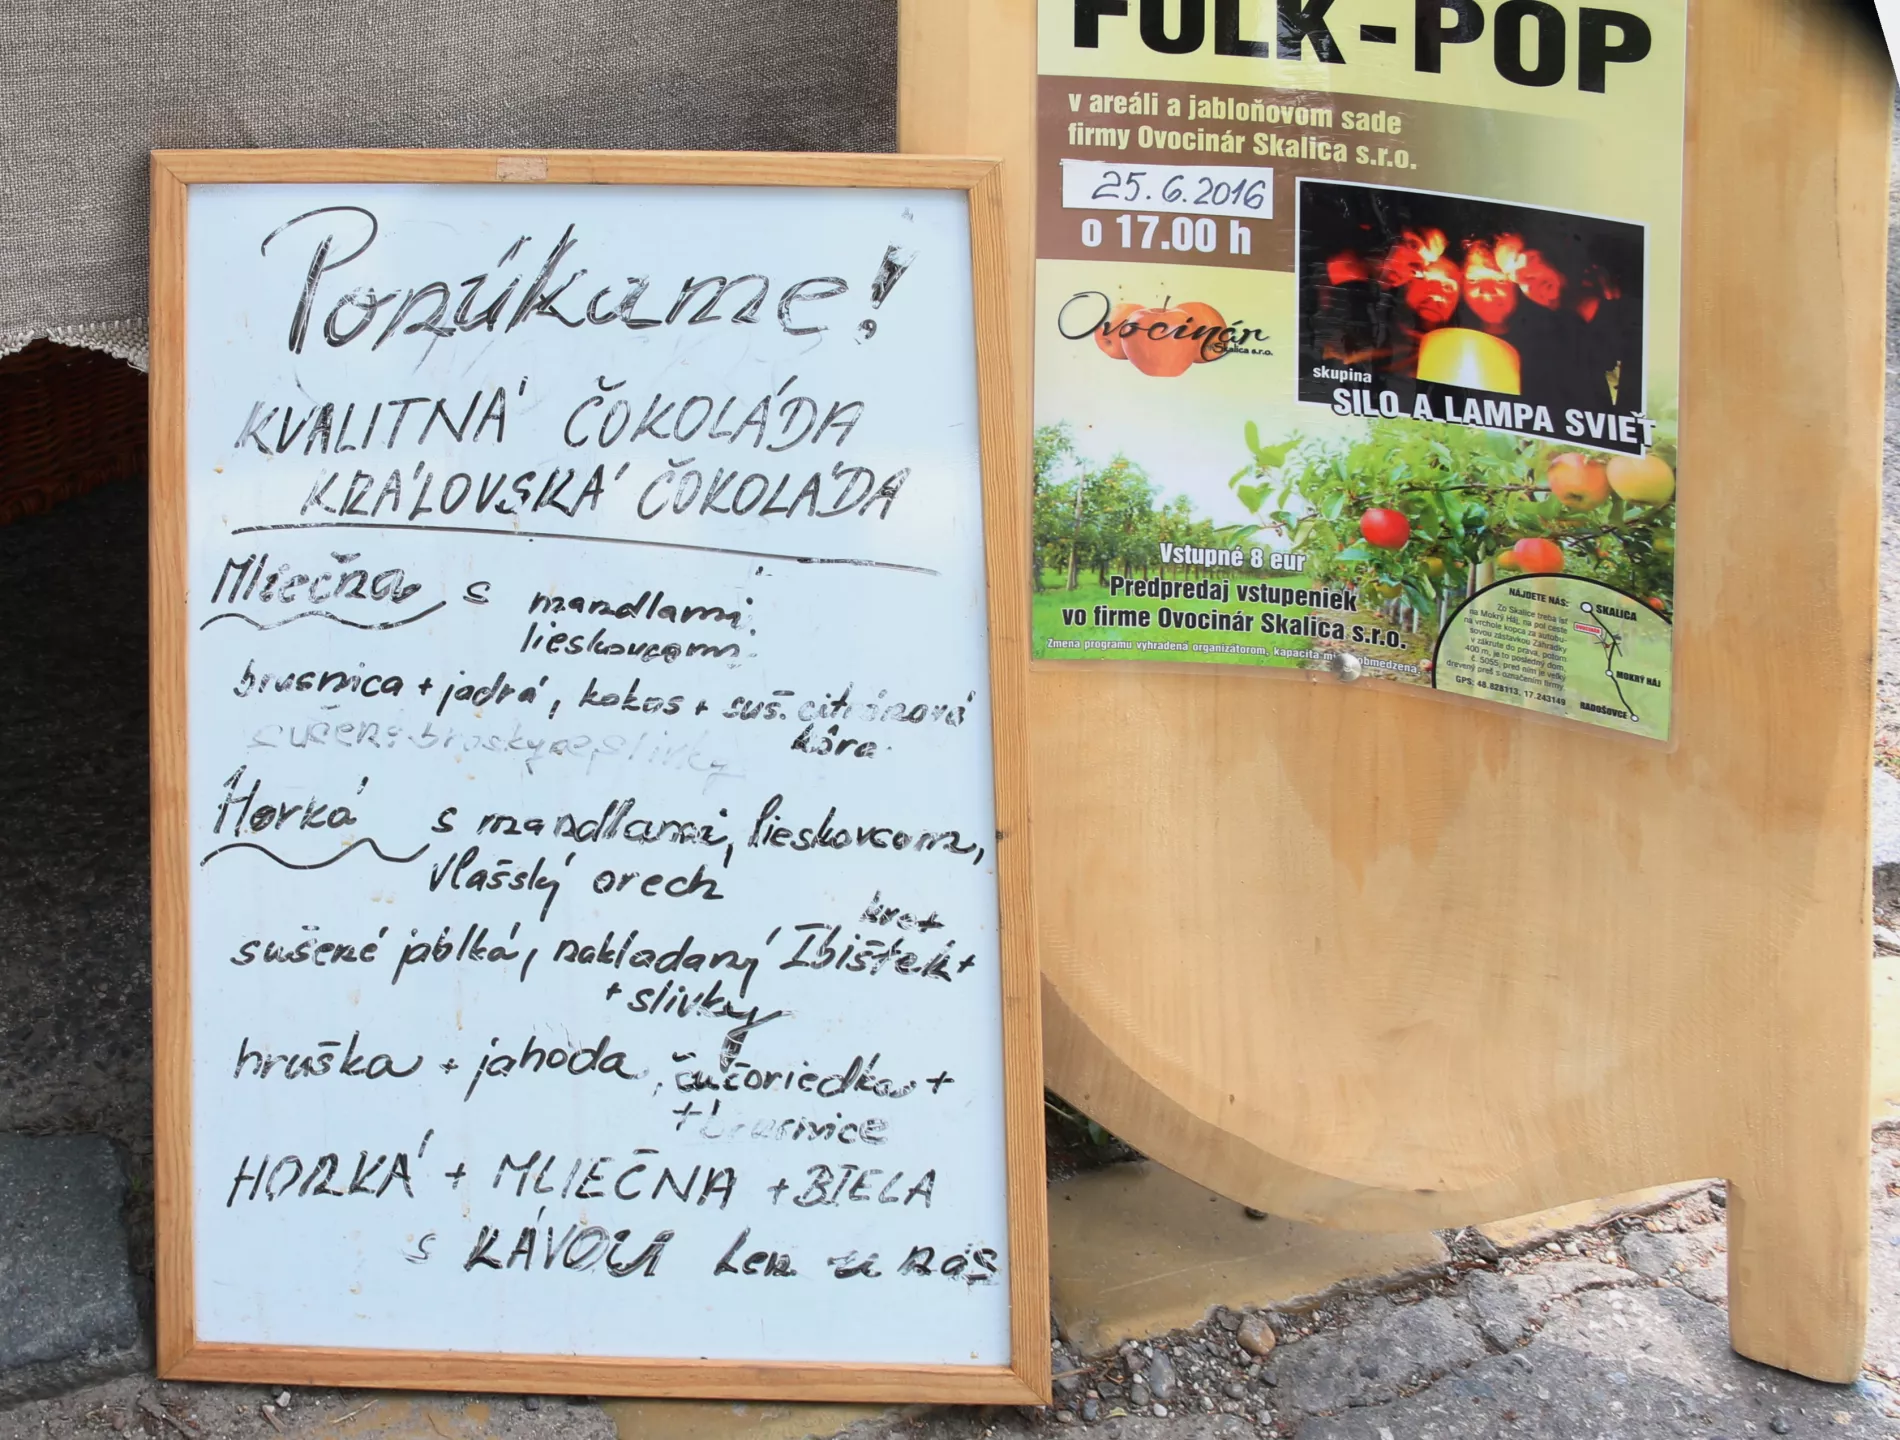 Ponúkame!
KVALITNÁ ČOKOLÁDA
KRÁLOVSKÁ ČOKOLÁDA
Mliečna s mandlami,
lieskovcom,
brusnica + jadrá, kokos + suš. citrónová
kôra
sušené broskyne slivky
Horká s mandlami, lieskovcom,
vlašský orech
kvet
sušené jablká, nakladaný Ibištek +
+ slivky
hruška + jahoda, čučoriedka +
+ brusnice
HORKÁ + MLIEČNA + BIELA
s KÁVOU len u nás
FOLK-POP
v areáli a jabloňovom sade
firmy Ovocinár Skalica s.r.o.
25.6.2016
o 17.00 h
Ovocinár
Skalica s.r.o.
skupina
SILO A LAMPA SVIEŤ
Vstupné 8 eur
Predpredaj vstupeniek
vo firme Ovocinár Skalica s.r.o.
Zmena programu vyhradená organizátorom, kapacita obmedzená.
NÁJDETE NÁS:
Zo Skalice treba ísť
na Mokrý Háj, na pol ceste
na vrchole kopca za autobu-
sovou zástavkou Záhradky
v zákrute do prava, potom
400 m, je to posledný dom,
č. 5055, pred ním je veľký
drevený preš s označením firmy.
GPS: 48.828113, 17.243149
SKALICA
OVOCINÁR
MOKRÝ HÁJ
RADOŠOVCE